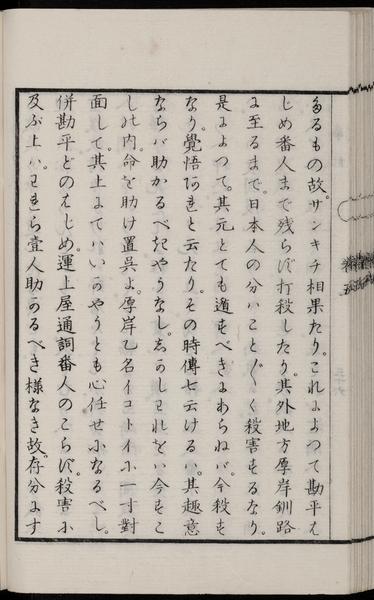 たるもの故。サンキチ相果たり。これによつて勘平は
じめ番人まで残らず打殺したり。其外地方厚岸釧路
に至るまで。日本人の分ハことごとく殺害するなり。
是によつて。其元とても遁すべきにあらねバ。今殺す
なり。覺悟あれと云たり。その時傳七云けるハ。其趣意
ならバ助かるべきやうなし。しかしわれをハ今すこ
しの内。命を助け置呉よ。厚岸乙名イコトイに一寸對
面して。其上にてハいかやうとも心任せになるべし。
併勘平どのはじめ。運上屋通詞番人のこらず。殺害に
及ぶ上ハ。われら壹人助かるべき様なき故。存分にす